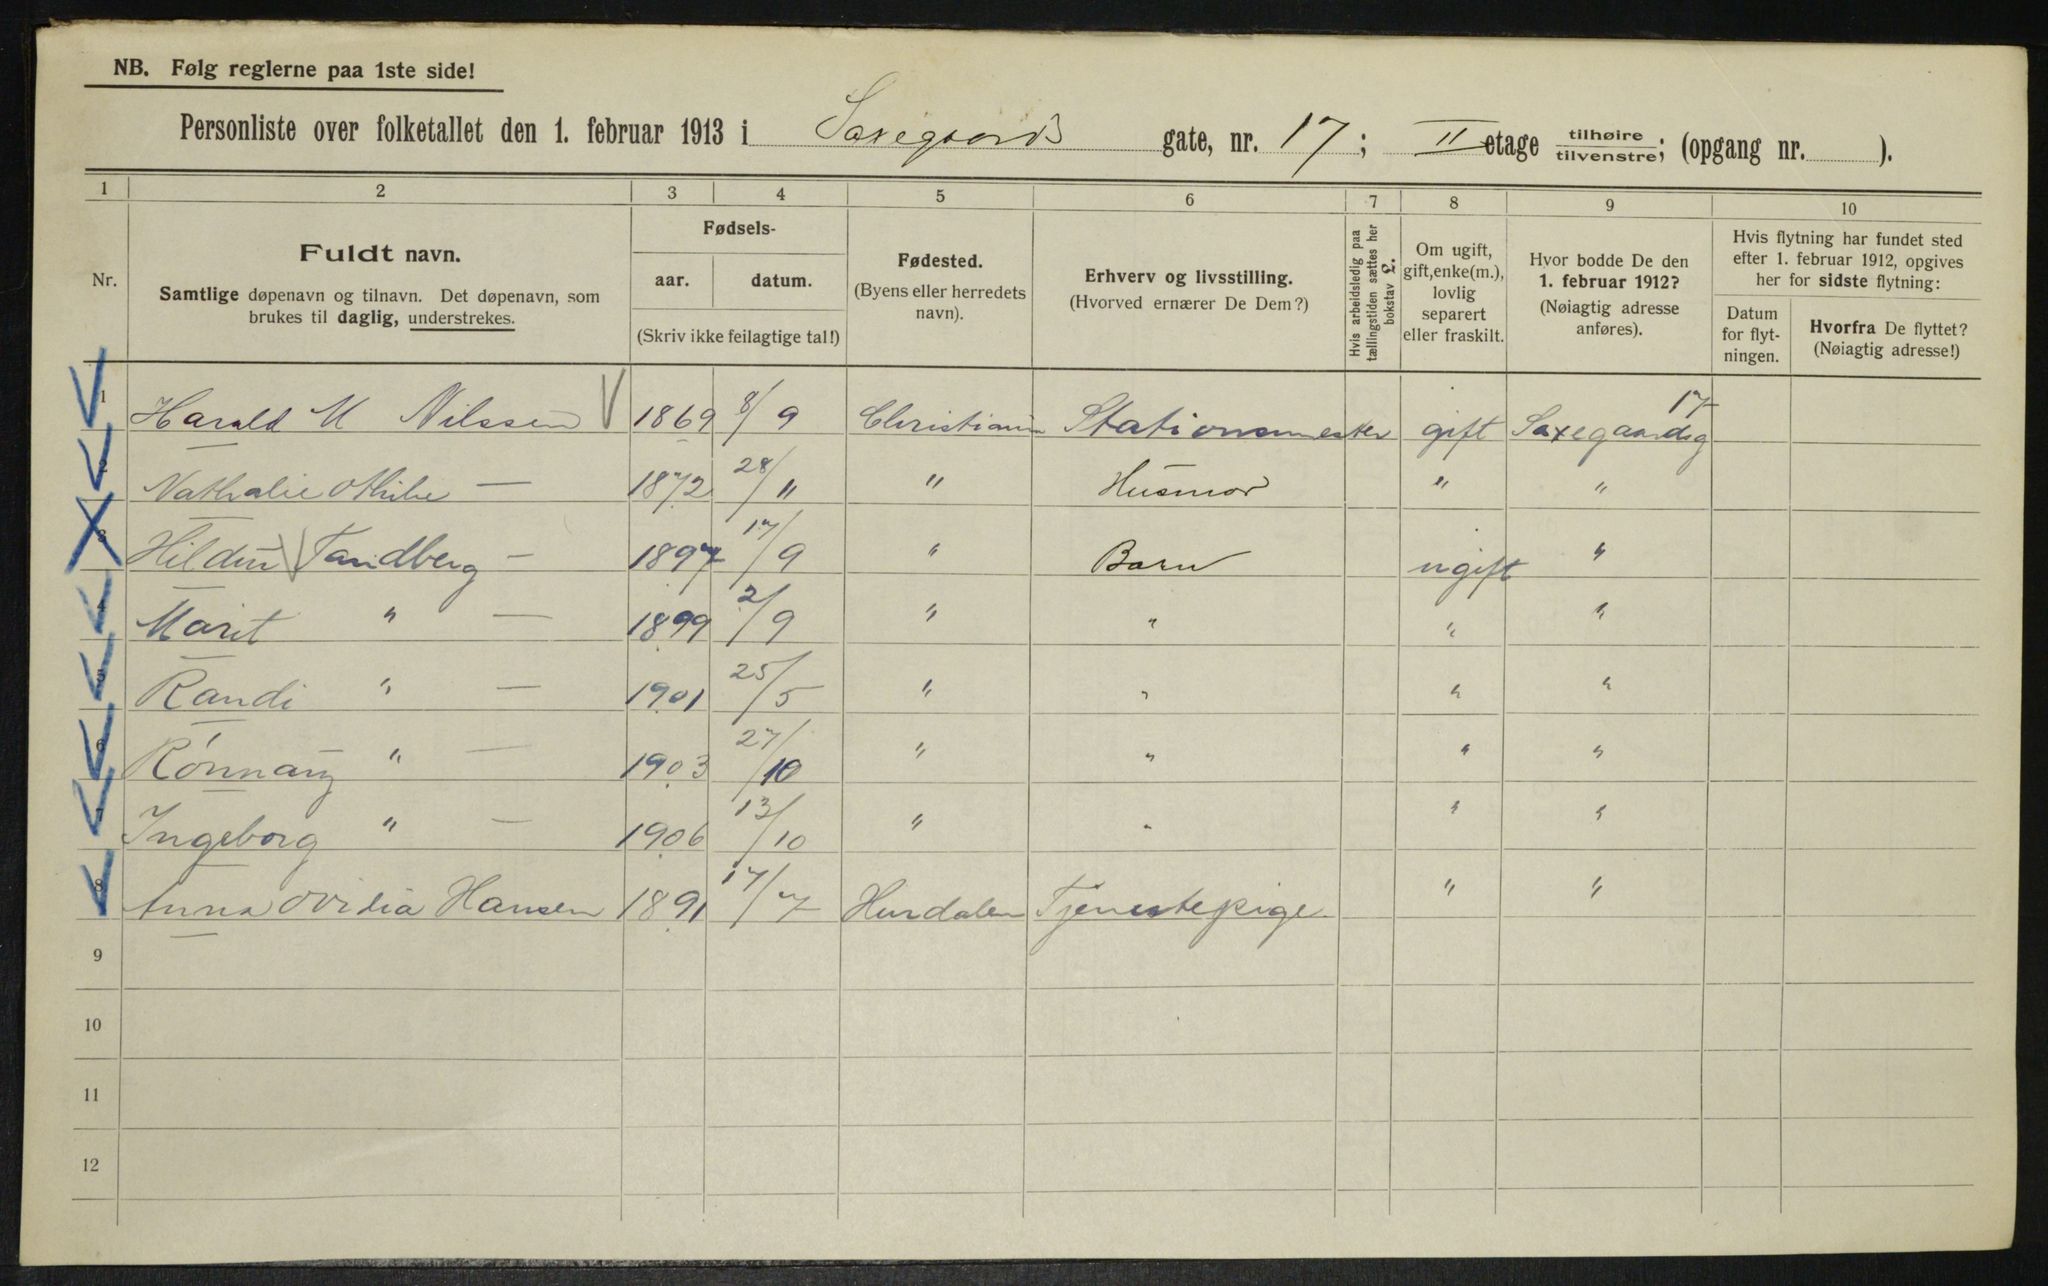 NB. Følg reglerne paa 1ste side!
Personliste over folketallet den 1. februar 1913 i Saxegaards gate, nr. 17; II etage tilhøire tilvenstre; (opgang nr. ).
1 2 3 4 5 6 7 8 9 10
Nr.
Fuldt navn.
Samtlige døpenavn og tilnavn. Det døpenavn, som
brukes til daglig, understrekes.
Fødsels-
aar. datum.
(Skriv ikke feilagtige tal!)
Fødested.
(Byens eller herredets
navn).
Erhverv og livsstilling.
(Hvorved ernærer De Dem?)
Hvis arbeidsledig paa
tællingstiden sættes her
bokstav L.
Om ugift,
gift, enke(m.),
lovlig
separert
eller fraskilt.
Hvor bodde De den
1. februar 1912?
(Nøiagtig adresse
anføres).
Hvis flytning har fundet sted
efter 1. februar 1912, opgives
her for sidste flytning:
Datum
for flyt-
ningen.
Hvorfra De flyttet?
(Nøiagtig adresse!)
1 Harald M Nilssen 1869 8/9 Christiania Stationsmester gift Saxegaardsg 17
2 Nathalie Othilie — 1872 28/11 " Husmor " "
3 Hildur Tandberg — 1897 17/9 " Barn ugift "
4 Marit " — 1899 2/9 " " " "
5 Randi " — 1901 25/5 " " " "
6 Rönnaug " — 1903 27/10 " " " "
7 Ingeborg " — 1906 13/10 " " " "
8 Anna Ovidia Hansen 1891 17/7 Hurdalen Tjenestepige " "
9
10
11
12